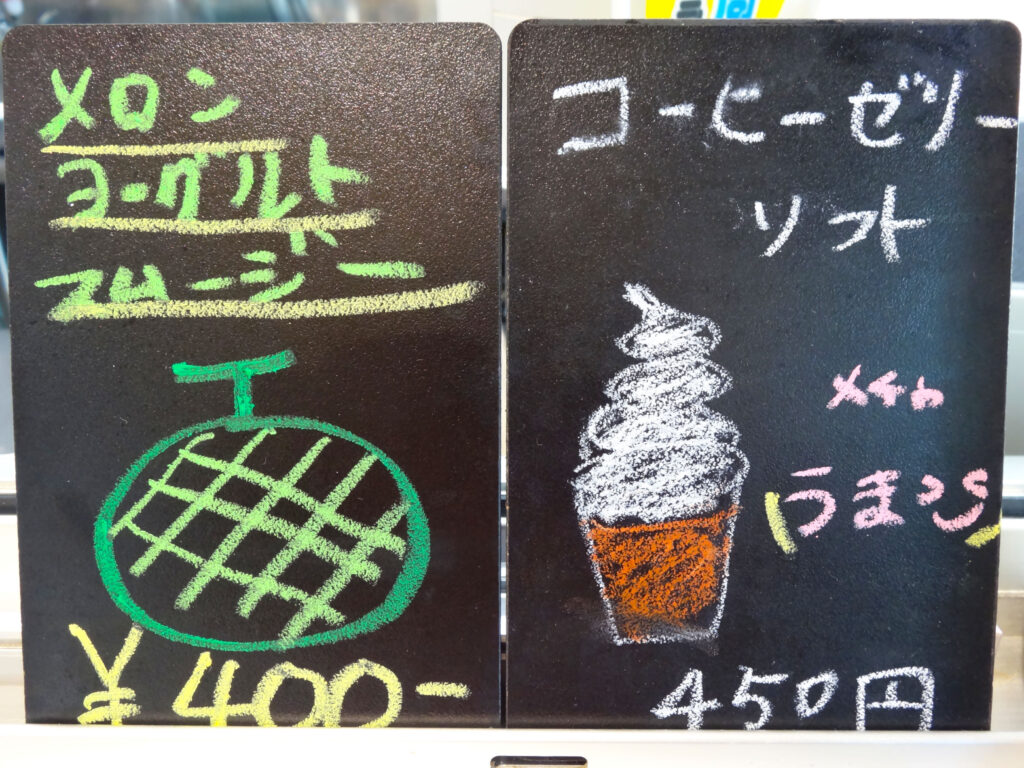 メロン
ヨーグルト
スムージー
¥400-
コーヒーゼリー
ソフト
メチャ
450円